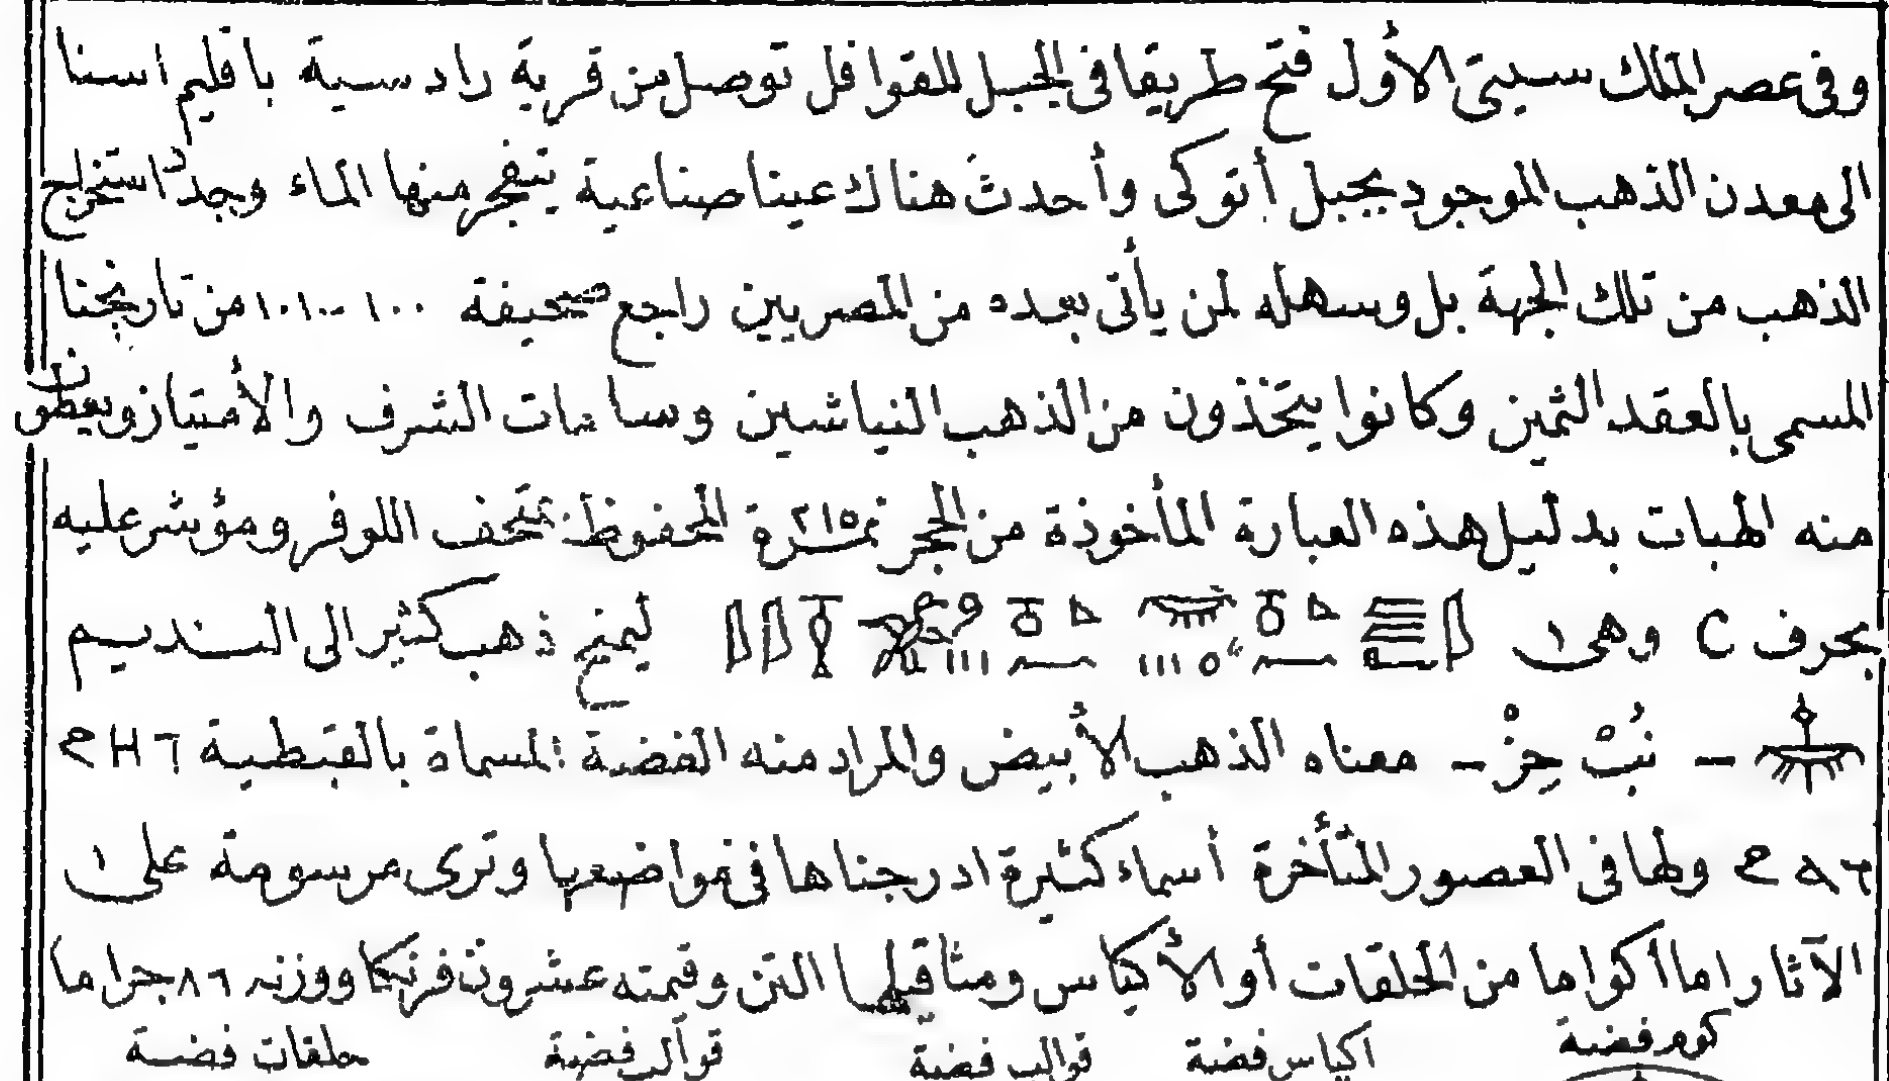 وفى عصر الملك سيتى الأول فتح طريقا فى الجبل للقوافل توصل من قرية رادسية باقليم اسنا
الى معدن الذهب الموجود بجبل أتوكى وأحدث هناك عينا صناعية يتفجر منها الماء وجدد استخراج
الذهب من تلك الجهة بل وسهله لمن يأتى بعده من المصريين راجع صحيفة ١٠٠ ــ ١٠١ من تاريخنا
المسمى بالعقد الثمين وكانوا يتخذون من الذهب النياشين وسامات الشرف والأمتياز ويعطون
منه الهبات بدليل هذه العبارة المأخوذة من الحجر نمرة ٢١٥ المحفوظ بمتحف اللوفر ومؤشر عليه
بحرف C وهى ليمنح ذهب كثير الى النديم
– نُبْ حِزْ – معناه الذهب الأبيض والمراد منه الفضة المسماة بالقبطية
ولها فى العصور المتأخرة أسماء كثيرة ادرجناها فى مواضعها وترى مرسومة على
الآثار اما أكواما من الحلقات أو الأكياس ومثاقيلها التن وقيمته عشرون فرنكا ووزنه ٨٦ جراما
كوم فضة اكياس فضة قوالب فضة قوالب فضة حلقات فضة